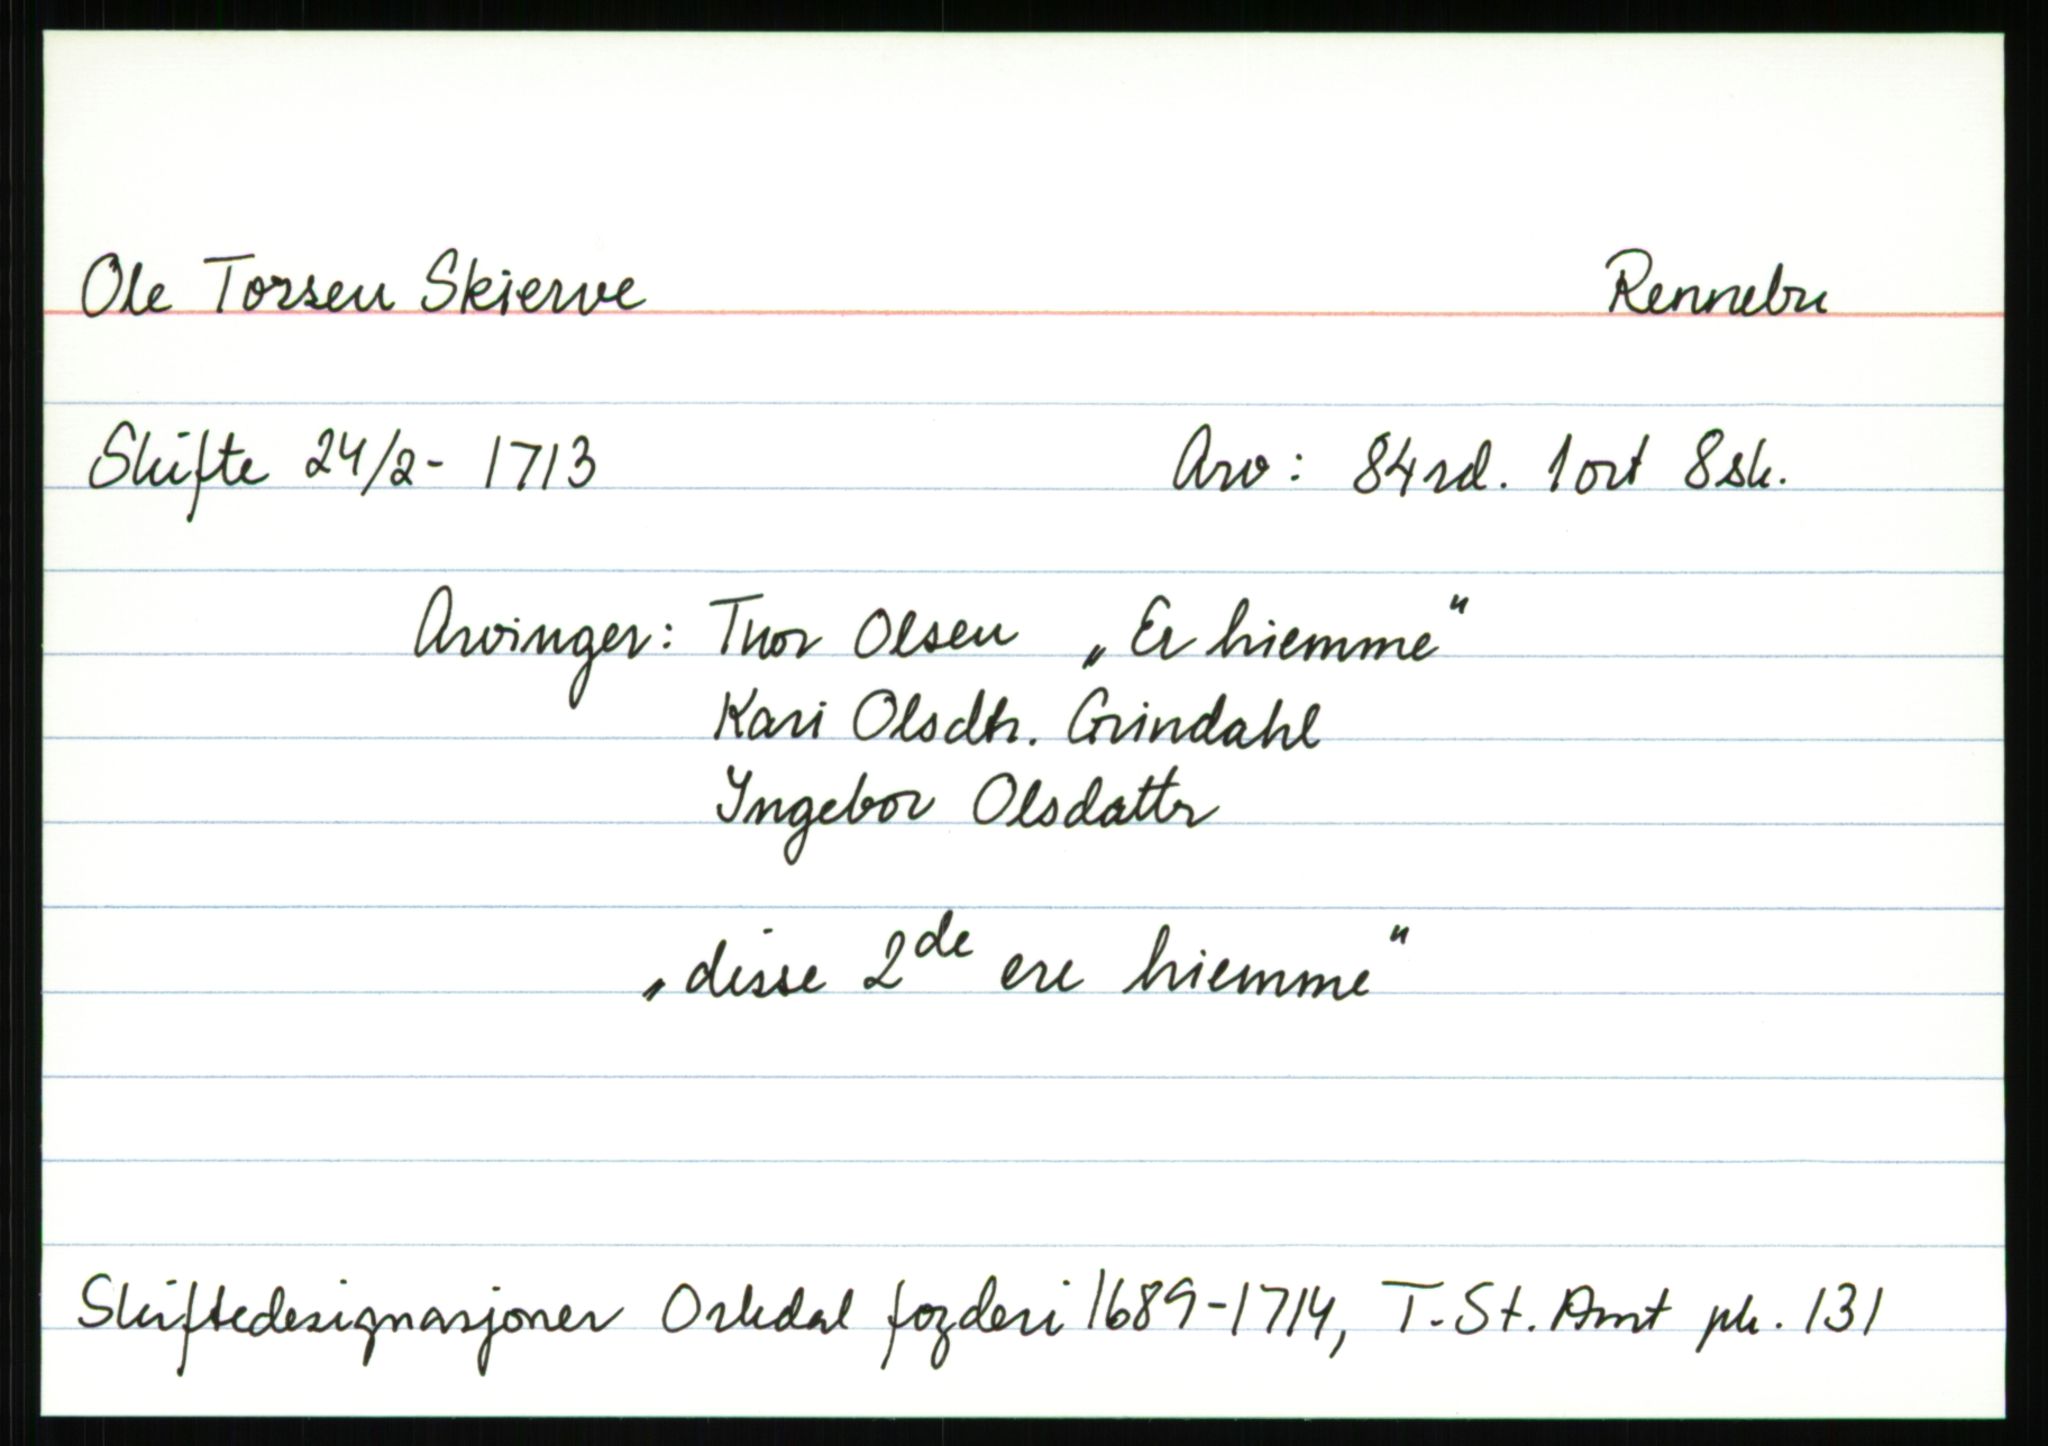 Ole Torsen Skierve Rennebu
Skifte 24/2- 1713 Arv: 84 rd. 1 ort 8 sk.
Arvinger: Thor Olsen „Er hiemme“
Kari Olsdtr. Grindahl
Ingebor Olsdattr
„disse 2de ere hiemme“
Skiftedesignasjoner Orkdal fogderi 1689-1714, T. St. Amt pk. 131